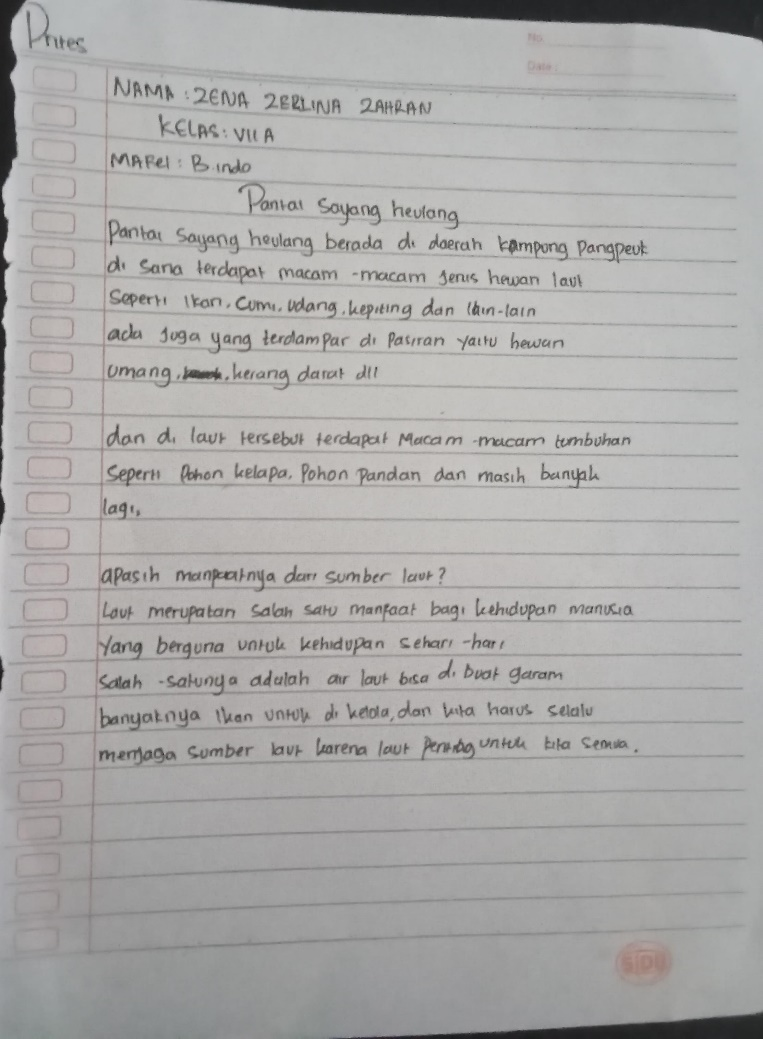 Prites
No.
Date:
NAMA : ZENA ZERLINA ZAHRAN
KELAS : VII A
MAPEl : B.indo
Pantai Sayang heulang
Pantai Sayang heulang berada di daerah kampong Pangpeuk
di sana terdapat macam-macam Jenis hewan laut
Seperti Ikan, Cumi, udang, kepiting dan lain-lain
ada Juga yang terdampar di Pasiran yaitu hewan
umang, , kerang darat dll
dan di laut tersebut terdapat Macam-macam tumbuhan
Seperti Pohon kelapa, Pohon Pandan dan masih banyak
lagi,
apasih manpaatnya dari sumber laut?
Laut merupakan Salah satu manfaat bagi kehidupan manusia
Yang berguna untuk kehidupan Sehari-hari
Salah-satunya adalah air laut bisa di buat garam
banyaknya Ikan untuk di kelola, dan kita harus selalu
menjaga sumber laut karena laut Penting untuk kita Semua.
SIDU